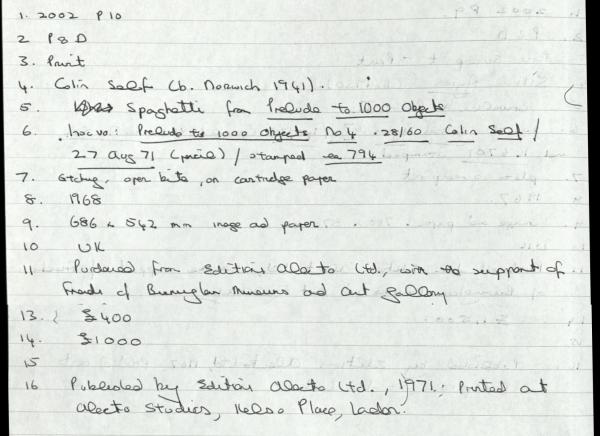 1. 2002 P10
2 P&D
3. Print
4. Colin Self (b. Norwich 1941).
5. Spaghetti from Prelude to 1000 Objects
6. Inc vo: Prelude to 1000 objects No 4. 28/60 Colin Self /
27 Aug 71 (pencil) / stamped ea 794
7. Etching, open bite, on cartridge paper
8. 1968
9. 686 x 542 mm image and paper.
10 UK
11 Purchased from Editions Alecto Ltd., with the support of
Friends of Birmingham Museums and Art Gallery
13. £400
14. £1000
15
16 Published by Editions Alecto Ltd., 1971; Printed at
Alecto Studios, Kelso Place, London.